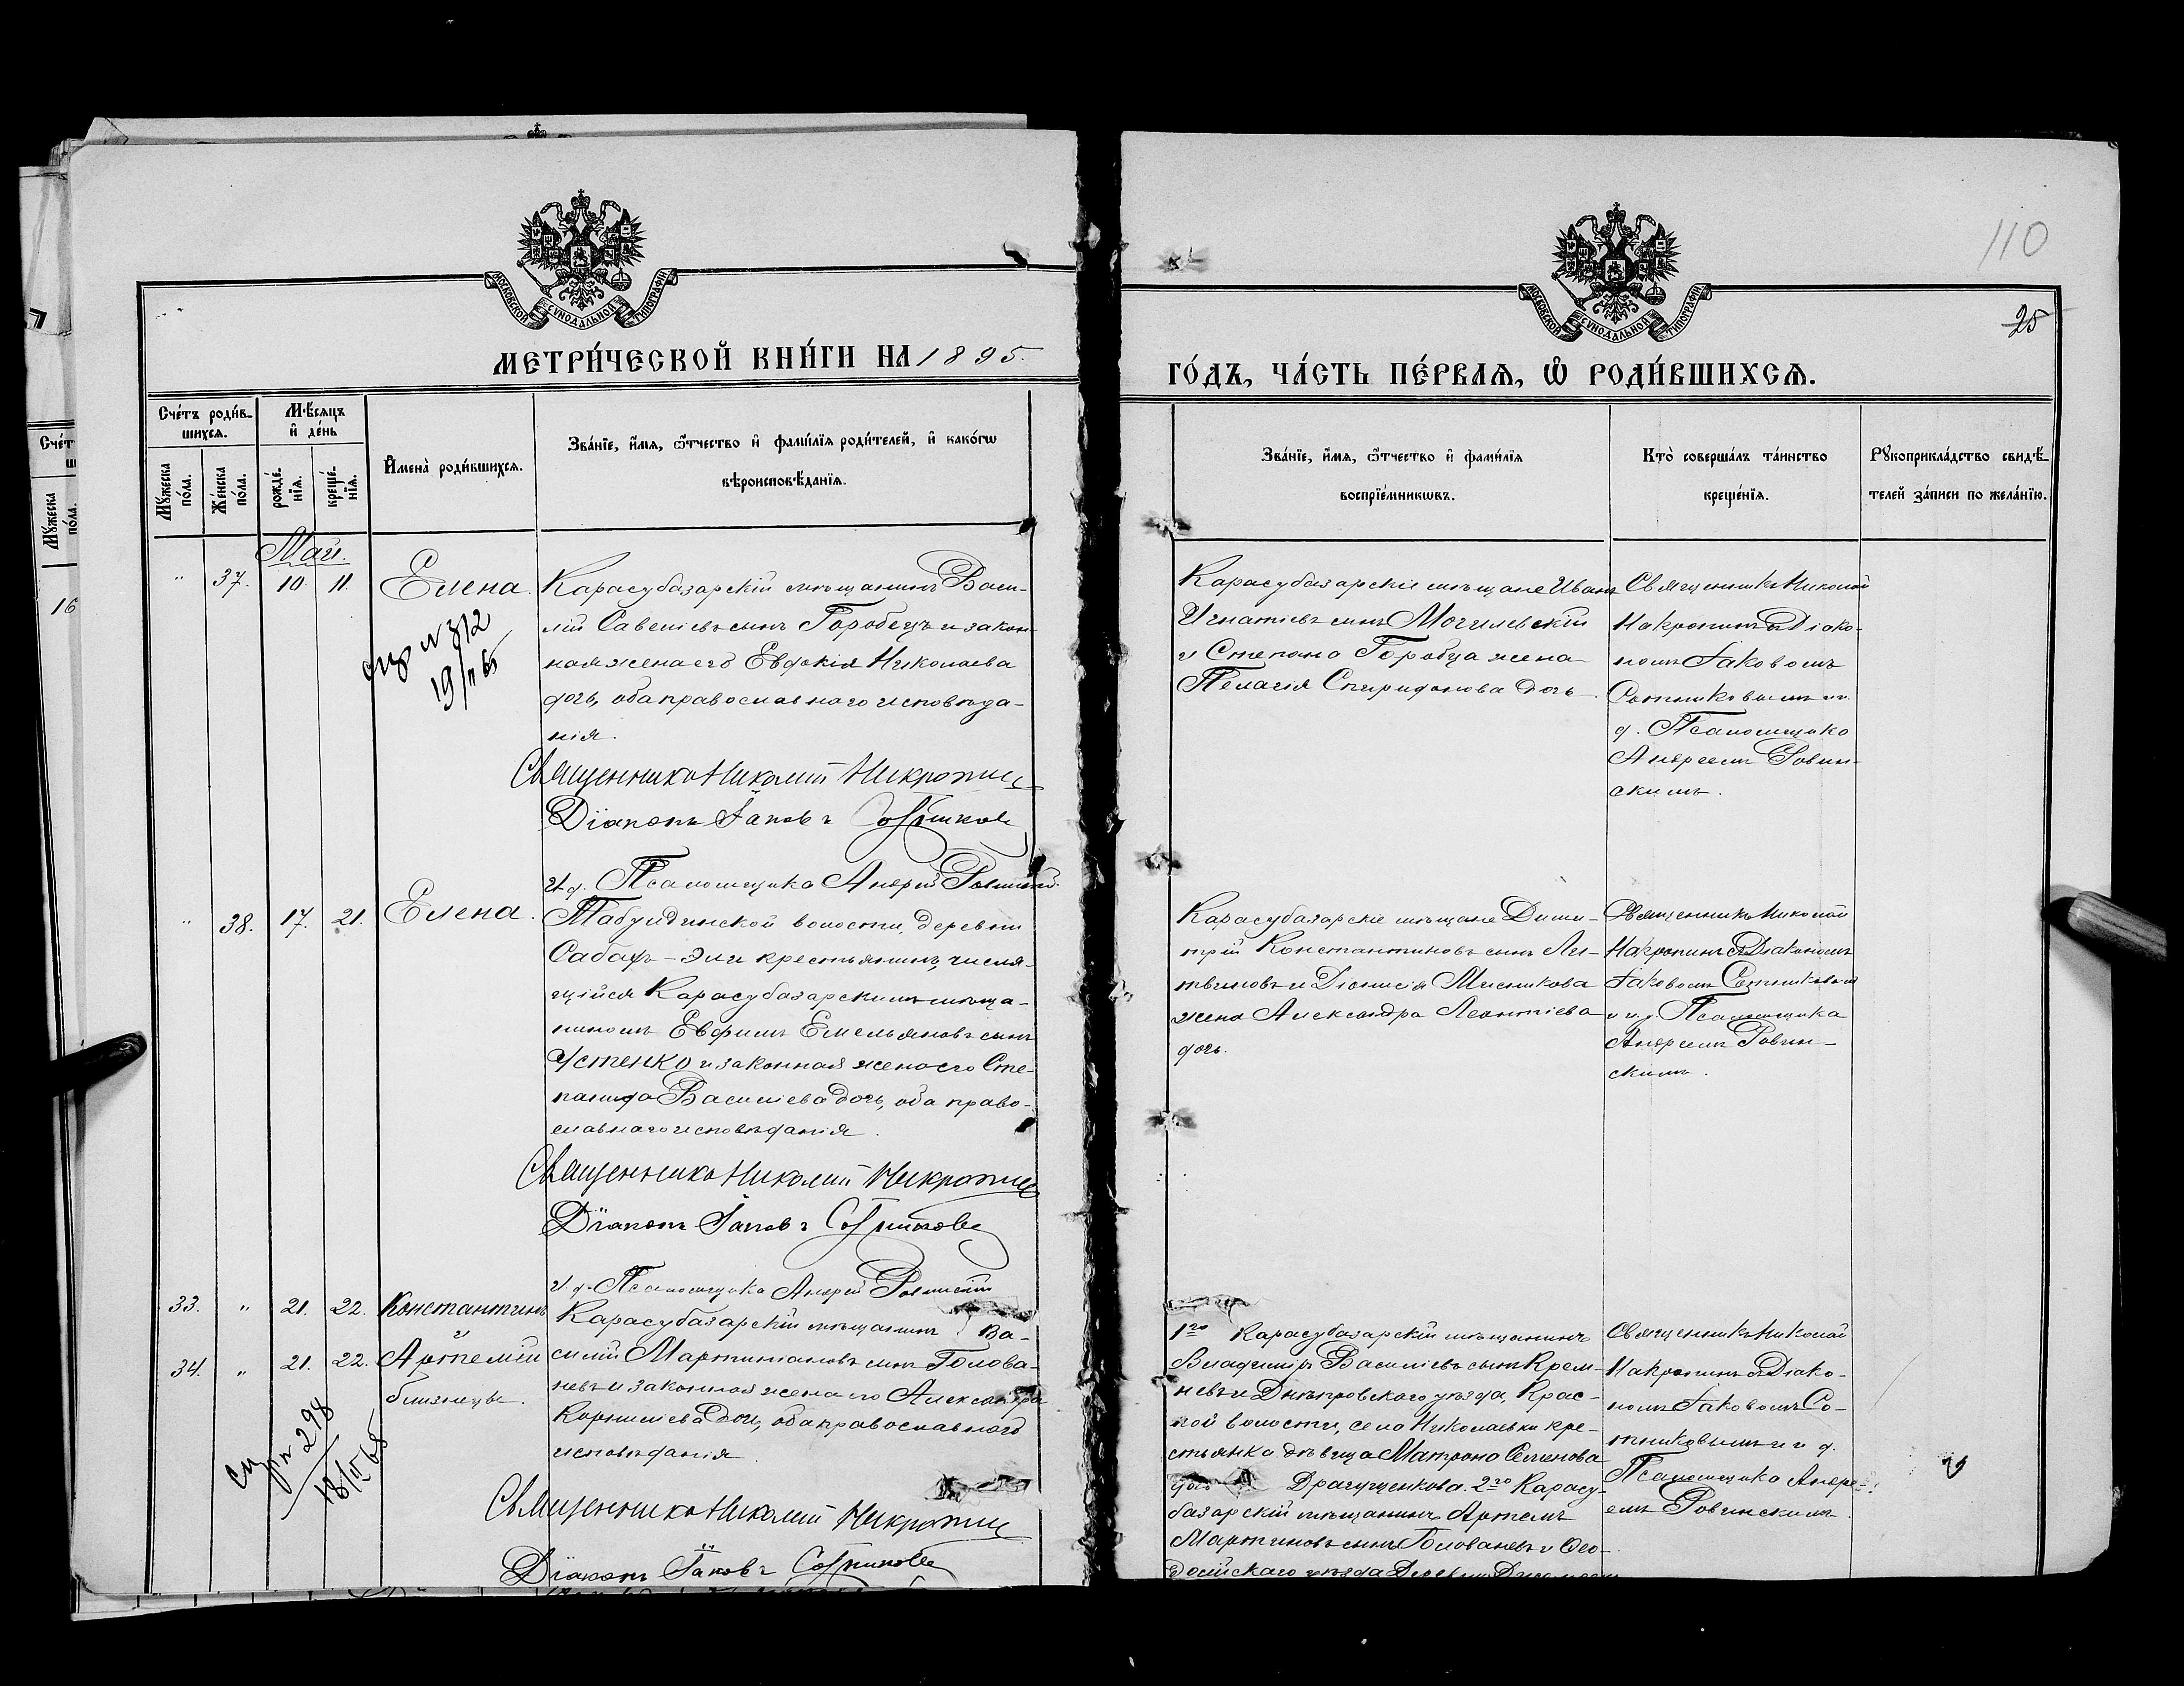 110
25
МОСКОВСКОЙ СѴНОДАЛЬНОЙ ТИПОГРАФІИ
МЕТРИ́ЧЕСКОЙ КНИ́ГИ НА 1895.
МОСКОВСКОЙ СѴНОДАЛЬНОЙ ТИПОГРАФІИ
ГО́ДЪ, ЧА́СТЬ ПЕ́РВАѦ, Ѡ҆ РОДИ́ВШИХСѦ.
Сче́тъ роди́в-
шихсѧ.
Мꙋ́жеска по́ла.
Же́нска по́ла.
Мѣ́сѧцъ
и҆ де́нь
рожде́-
нїѧ.
креще́-
нїѧ.
И҆мена̀ роди́вшихсѧ.
Зва́нїе, и҆́мѧ, ѻ҆́тчество и҆ фами́лїѧ роди́телей, и҆ како́гѡ
вѣроисповѣ́данїѧ.
Зва́нїе, и҆́мѧ, ѻ҆́тчество и҆ фами́лїѧ
воспрїе́мникѡвъ.
Кто̀ соверша́лъ та́инство
креще́нїѧ.
Рꙋкоприкла́дство свидѣ́-
телей за́писи по жела́нїю.
Май.
" 37. 10. 11. Елена.
№ 312
19/II 65
Карасубазарскій мѣщанинъ Васи-
лій Савеліевъ сынъ Горобецъ и закон-
ная жена его Евдокія Николаева
дочь, оба православнаго исповѣда-
нія.
Священникъ Николай Накропинъ
Діаконъ Іаковъ Сотниковъ
И. д. Псаломщика Андрей Ровинскій.
Карасубазарскіе мѣщане Иванъ
Игнатіевъ сынъ Могилевскій
и Степана Горобца жена
Пелагія Спиридонова дочь.
Священникъ Николай
Накропинъ съ Діако-
номъ Іаковомъ
Сотниковымъ и и.
д. Псаломщика
Андреемъ Ровин-
скимъ.
" 38. 17. 21. Елена.
Табулдинской волости, деревни
Сабахъ-Эли крестьянинъ, числя-
щійся Карасубазарскимъ мѣща-
ниномъ Евфимъ Емельяновъ сынъ
Устенко и законная жена его Сте-
панида Василіева дочь, оба право-
славнаго исповѣданія.
Священникъ Николай Накропинъ
Діаконъ Іаковъ Сотниковъ
И. д. Псаломщика Андрей Ровинскій
Карасубазарскіе мѣщане Дими-
трій Константиновъ сынъ Ли-
твиновъ и Діонисія Мисникова
жена Александра Леонтіева
дочь.
Священникъ Николай
Накропинъ съ Діакономъ
Іаковомъ Сотниковымъ
и и. д. Псаломщика
Андреемъ Ровин-
скимъ.
33. " 21. 22. Константинъ
и
34. " 21. 22. Артемій
близнецы.
№ 298
18/II 65
Карасубазарскій мѣщанинъ Ва-
силій Мартиніановъ сынъ Голова-
невъ и законная жена его Александра
Корниліева дочь, оба православнаго
исповѣданія.
Священникъ Николай Накропинъ
Діаконъ Іаковъ Сотниковъ
1го Карасубазарскій мѣщанинъ
Владиміръ Василіевъ сынъ Крем-
невъ и Днѣпровскаго уѣзда, Крас-
ной волости, села Николаевки кре-
стьянка дѣвица Матрона Семенова
дочь Драгущенкова. 2го Карасу-
базарскій мѣщанинъ Артемъ
Мартиновъ сынъ Голованевъ и Ѳео-
досійскаго уѣзда Деревни
Священникъ Николай
Накропинъ съ Діако-
номъ Іаковомъ Со-
тниковымъ и и. д.
Псаломщика Андре-
емъ Ровинскимъ.
Сче́т
Мꙋ́жеска
по́ла.
16